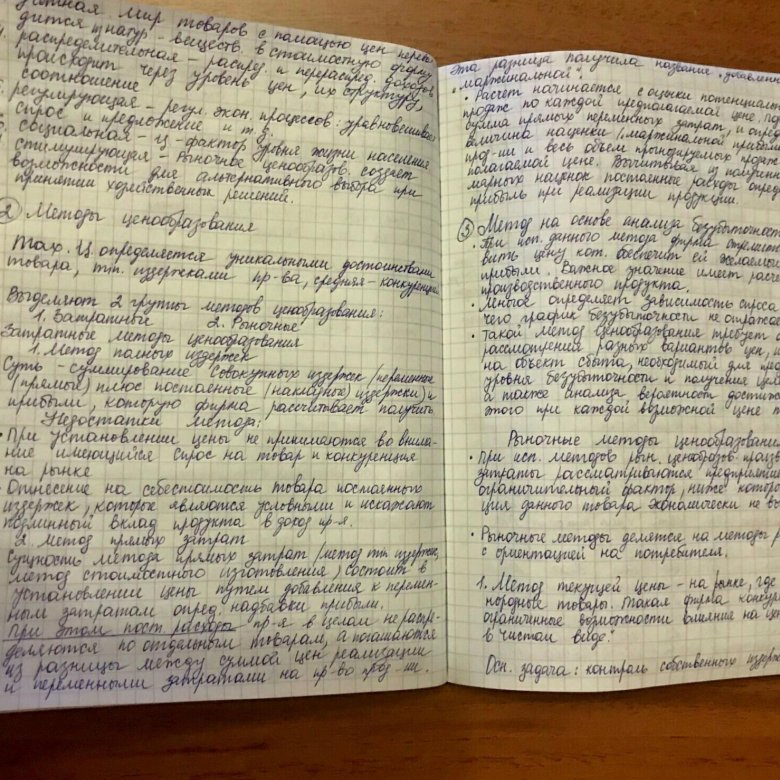 мир товаров с помощью цен
дится из натур.-веществ. в стоимостную форму
распределительная - распред. и перераспред. доходов
происходит через уровень цен, их структуру,
соотношение
регулирующая - регул. экон. процессов: уравновешивает
спрос и предложение и т.д.
социальная - Ц - фактор уровня жизни населения
стимулирующая - Рыночное ценообразов. создает
возможности для альтернативного выбора при
принятии хозяйственных решений.
② Методы ценообразования
Max. Ц. определяется уникальными достоинствами
товара, min. издержками пр-ва, средняя - конкуренцией
Выделяют 2 группы методов ценообразования:
1. Затратный 2. Рыночные
Затратные методы ценообразования
1. Метод полных издержек
Суть - суммирование совокупных издержек (переменные
(прямые) плюс постоянные (накладные) издержки) и
прибыли, которую фирма рассчитывает получить
Недостатки метода:
• При установлении цены не принимаются во внима-
ние имеющийся спрос на товар и конкуренция
на рынке
• Отнесение на себестоимость товара постоянных
издержек, которые являются условными и искажают
подлинный вклад продукта в доход пр-я.
2. Метод прямых затрат
Сущность метода прямых затрат (метод min. издержек,
метод стоимостного изготовления) состоит в
установлении цены путем добавления к перемен-
ным затратам опред. надбавки прибыли.
При этом пост. расходы пр-я в целом не распре-
деляются по отдельным товарам, а погашаются
из разницы между суммой цен реализации
и переменными затратами на пр-во прод-ии.
Эта разница получила название
"маржинальной".
• Расчет начинается с оценки
продаж по каждой предполагаемой цене.
сумма прямых переменных затрат, и
величина наценки (маржинальной
прод-ии и весь объем прогнозируемых
полагаемой цене. Вычитывая из
наценок постоянные расходы
прибыль при реализации продукции.
③ Метод на основе анализа
• При исп. данного метода фирма
вить цену, кот. обеспечит ей
прибыли. Важное значение имеет
производственного продукта.
• Многое определяет зависимость спроса
чего график безубыточности не
• Такой метод ценообразования требует
рассмотрения разных вариантов цен,
на объект сбыта, необходимый для
уровня безубыточности и получения
а также анализа вероятности
этого при каждой возможной цене
Рыночные методы ценообразования
• При исп. методов рын. ценообразов.
затраты рассматриваются
ограничительный фактор, ниже
ция данного товара экономически не
• Рыночные методы делятся на методы
с ориентацией на потребителя.
1. Метод текущей цены - на рынке, где
нородные товары. Такая фирма
ограниченные возможности влияния на
в чистом виде.
Осн. задача: контроль собственных